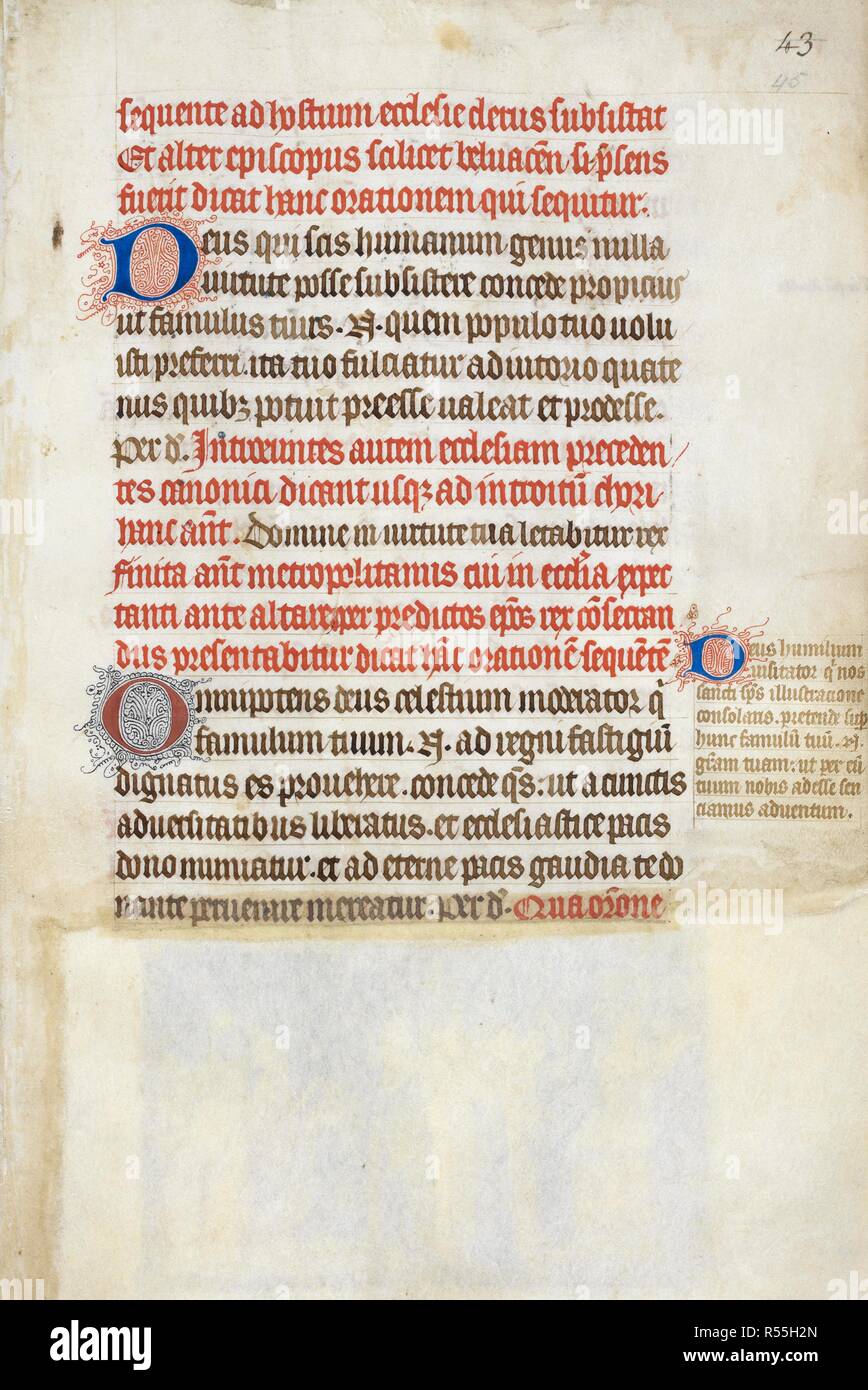 43
45
sequente ad hostium ecclesie clerus subsistat
Et alter episcopus scilicet beluacen̄ si p̄sens
fuerit dicat hanc orationem qui sequitur.
Deus qui scis humanum genus nulla
uirtute posse subsistere concede propicius
ut famulus tuus .N. quem populo tuo uolu
isti preferri. ita tuo fulciatur adiutorio quate
nus quibꝫ potuit preesse ualeat et prodesse.
Per d̄. Introeuntes autem ecclesiam preceden
tes canonici dicant usqꝫ ad introitū chori
hanc ant̄. Domine in uirtute tua letabitur rex
finita ant̄ metropolitanus cui in eccl̄ia expec
tanti ante altare per predictos ep̄os rex cōsecran
dus presentabitur dicat hāc orationē sequētē
Omnipotens deus celestium moderator q̄
famulum tuum .N. ad regni fastigiū
dignatus es prouehere. concede qs̄. ut a cunctis
aduersitatibus liberatus. et ecclesiastice pacis
dono muniatur. et ad eterne pacis gaudia te do
nante peruenire mereatur. Per d̄. Qua or̄one
Deus humilium
uisitator q̄ nos
sancti sp̄s illustracione
consolaris. pretende sup̄
hunc famulū tuū .N.
gr̄am tuam. ut per eū
tuum nobis adesse sen
ciamus aduentum.
alamy
Image ID: R55H2N
www.alamy.com